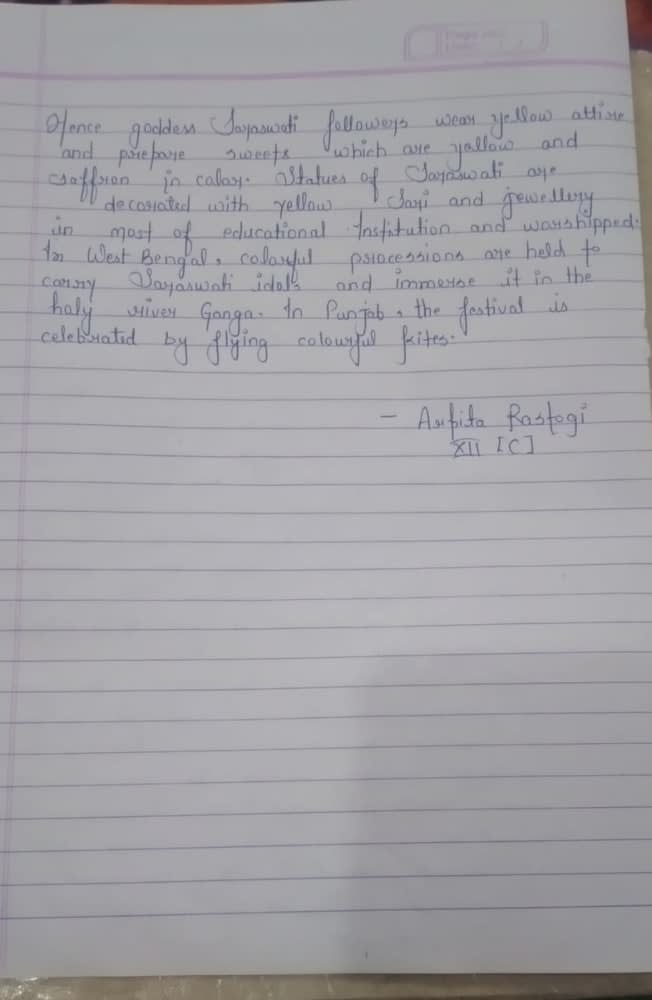 Hence goddess Saraswati followers wear yellow attire
and prepare sweets which are yellow and
saffron in color. Statues of Saraswati are
decorated with yellow Sari and jewellery
in most of educational Institution and worshipped.
In West Bengal, colorful processions are held to
carry Saraswati idols and immerse it in the
holy river Ganga. In Punjab, the festival is
celebrated by flying colourful kites.
- Arpita Rastogi
XII [C]